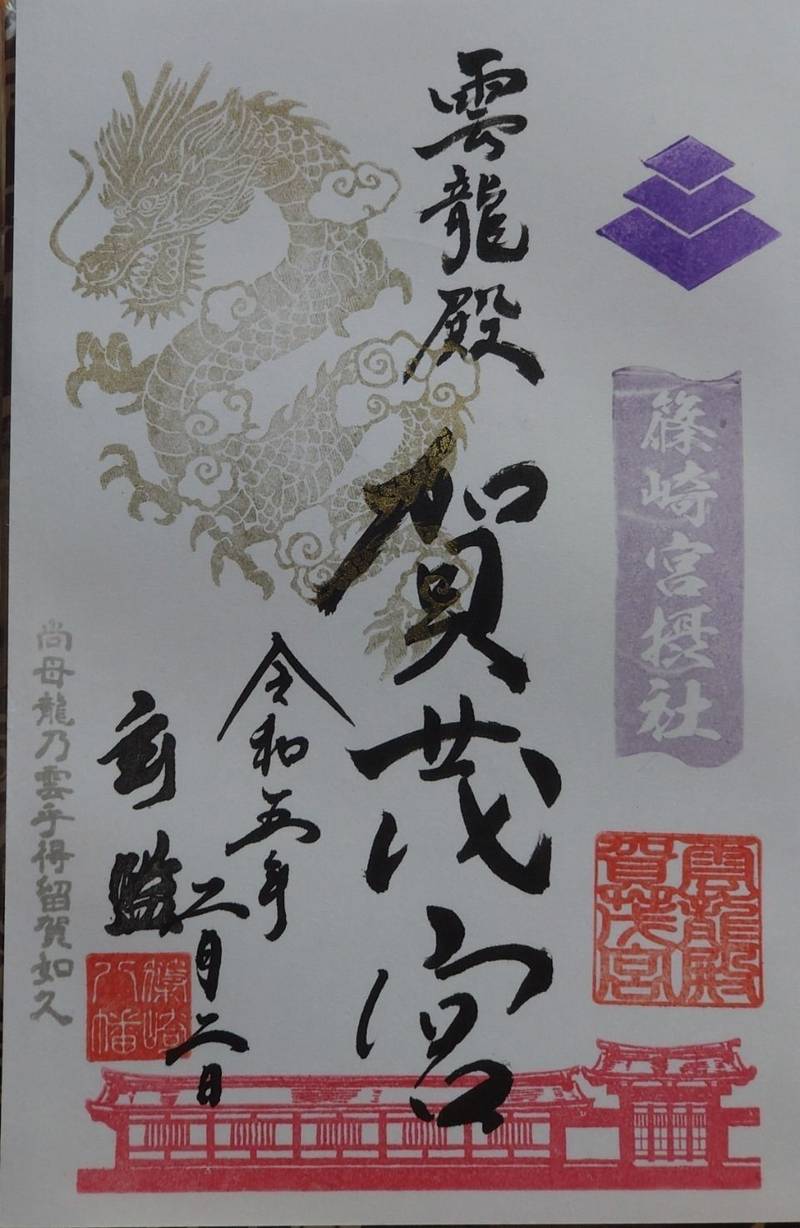 篠崎宮摂社
雲龍殿
賀茂宮
雲龍殿
賀茂宮
令和五年
二月二日
篠崎
八幡
尚母龍乃雲乎得留賀如久